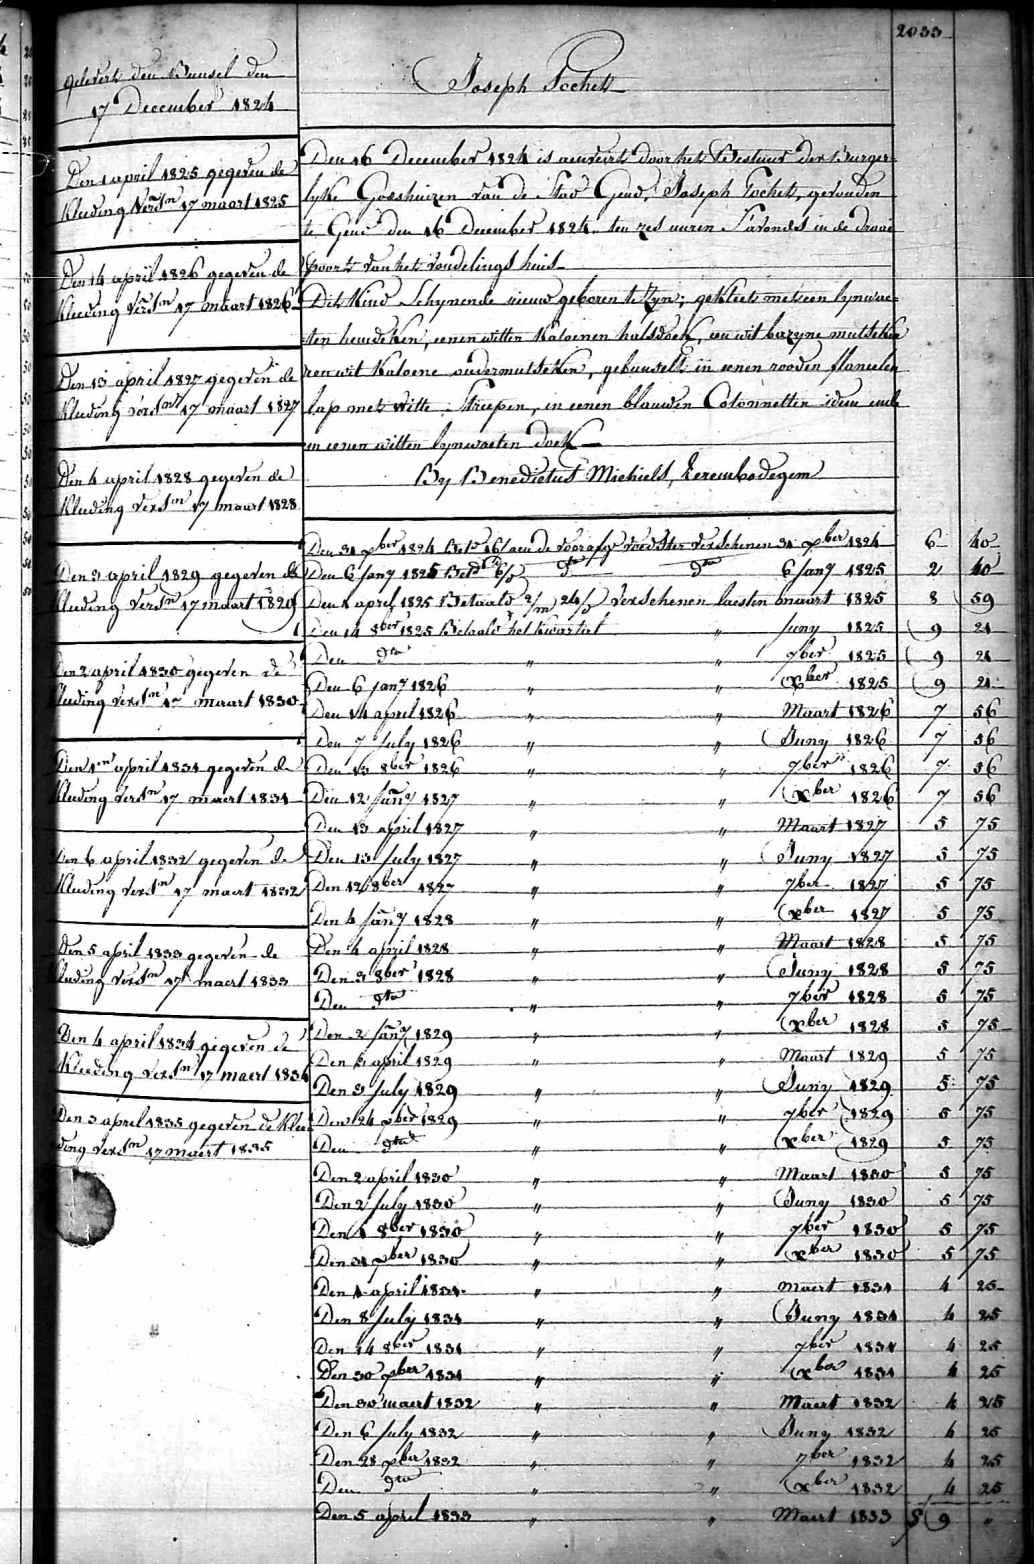 2033
gelevert den Bunsel den
17 December 1824
Joseph Fochett
Den 1 april 1825 gegeven de
Kleeding Versn 17 maart 1825
Den 14 april 1826 gegeven de
Kleeding Versn 17 maart 1826
Den 13 april 1827 gegeven de
Kleeding versn 17 maart 1827
Den 4 april 1828 gegeven de
Kleeding versn 17 maart 1828
Den 3 april 1829 gegeven de
Kleeding versn 17 maart 1829
Den 2 april 1830 gegeven de
Kleeding versn 17 maart 1830
Den 1en april 1831 gegeven de
Kleeding versn 17 maert 1831
Den 6 april 1832 gegeven de
Kleeding versn 17 maert 1832
Den 5 april 1833 gegeven de
Kleeding versn 17 maert 1833
Den 4 april 1834 gegeven de
Kleeding versn 17 maert 1834
Den 3 april 1835 gegeven de Klee
ding versn 17 maert 1835
Den 16 December 1824 is aenveirt door het Bestuur der Burger-
lyke Godshuizen van de Stad Gend, Joseph Fochett, gevonden
te Gend den 16 December 1824 ten zes uuren S'avonds in de draai
poorte van het vondelings huis
Dit Kind Schynende nieuw geboren te Zyn; gekleet met een lynwae-
ten hemdeken, eenen witten Katoenen halsdoek, een wit bazyne mutseken
een wit Katoene ondermutseken, gebunselt in eenen rooden flanelen
lap met witte Streepen, in eenen blauwen Cotonnetten idem ende
in eenen witten lynwaeten doek
By Benedictus Michiels, Terembodegem
Den 31 xber 1824 Betd 16/ aen de voorafge voedster verschenen 31 xber 1824 6 40
Den 6 Jany 1825 Betd 6/ dto dto 6 Jany 1825 2 40
Den 1 april 1825 Betaald 2/m 24/ verschenen laesten maart 1825 8 59
Den 14 8ber 1825 Betaald het kwartal " Juny 1825 9 21
Den dto " " 7ber 1825 9 21
Den 6 Jany 1826 " " xber 1825 9 21
Den 14 april 1826 " " Maart 1826 7 56
Den 7 July 1826 " " Juny 1826 7 56
Den 13 8ber 1826 " " 7ber 1826 7 56
Den 12 Jany 1827 " " xber 1826 7 56
Den 13 april 1827 " " Maart 1827 5 75
Den 13 July 1827 " " Juny 1827 5 75
Den 12 8ber 1827 " " 7ber 1827 5 75
Den 4 Jany 1828 " " xber 1827 5 75
Den 4 april 1828 " " Maart 1828 5 75
Den 3 8ber 1828 " " Juny 1828 5 75
Den dto " " 7ber 1828 5 75
Den 2 Jany 1829 " " xber 1828 5 75
Den 3 april 1829 " " Maart 1829 5 75
Den 3 July 1829 " " Juny 1829 5 75
Den 24 xber 1829 " " 7ber 1829 5 75
Den dto " " xber 1829 5 75
Den 2 april 1830 " " Maart 1830 5 75
Den 2 July 1830 " " Juny 1830 5 75
Den 1 8ber 1830 " " 7ber 1830 5 75
Den 31 xber 1830 " " xber 1830 5 75
Den 1 april 1831 " " maert 1831 4 25
Den 8 July 1831 " " Juny 1831 4 25
Den 14 8ber 1831 " " 7ber 1831 4 25
Den 30 xber 1831 " " xber 1831 4 25
Den 30 maert 1832 " " Maert 1832 4 25
Den 6 July 1832 " " Juny 1832 4 25
Den 28 xber 1832 " " 7ber 1832 4 25
Den dto " " xber 1832 4 25
Den 5 april 1833 " " Maert 1833 9 "